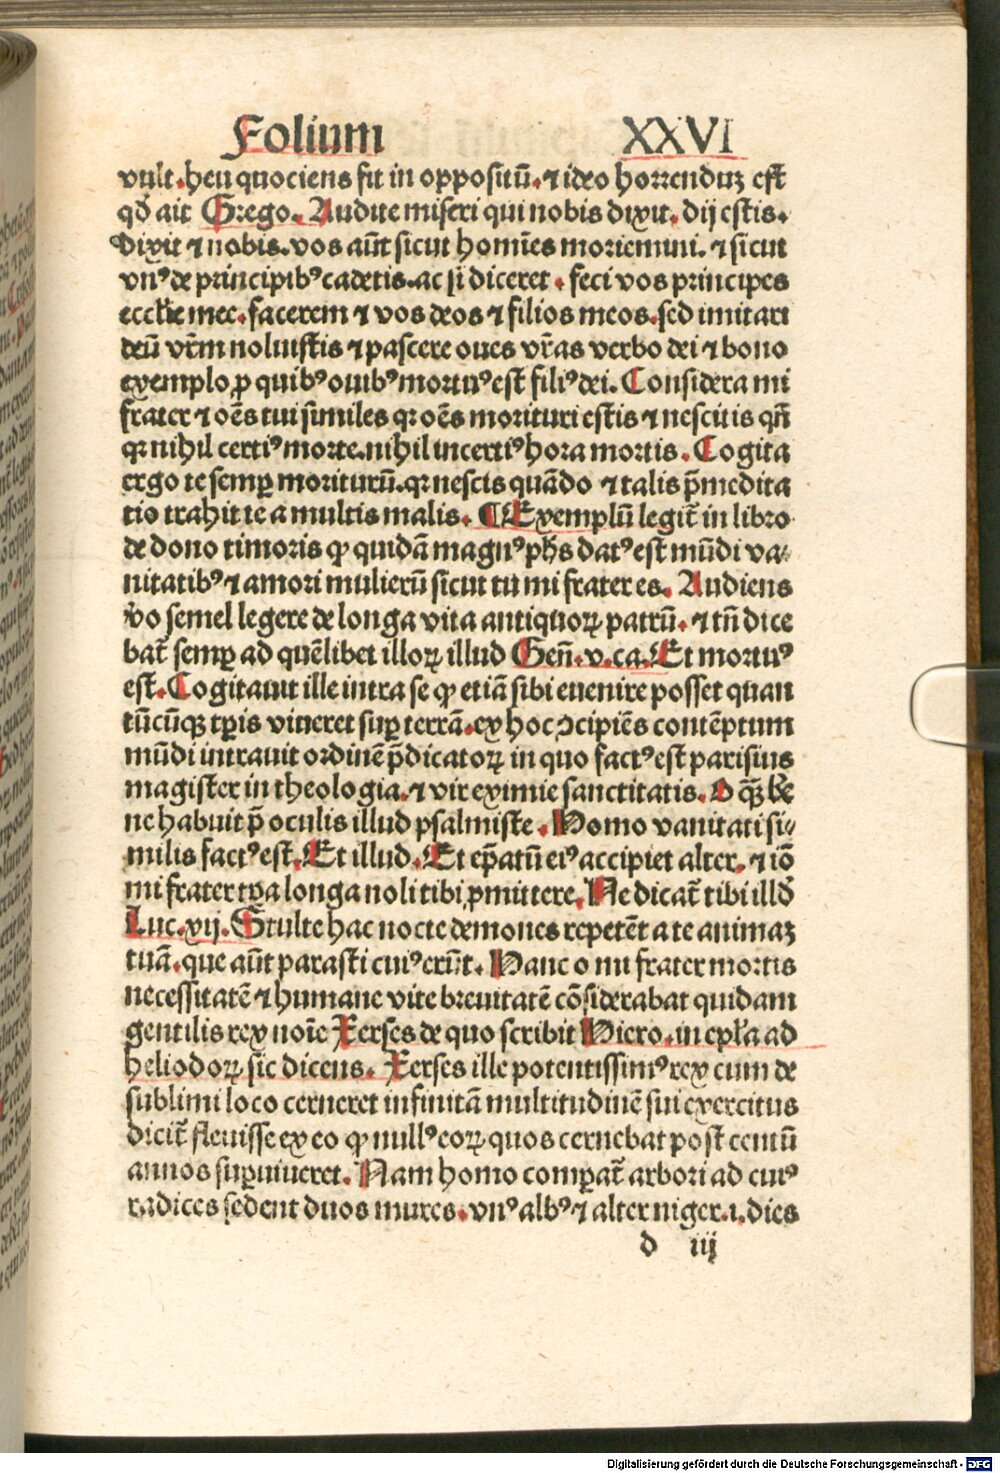 Folium XXVI
vult. heu quociens fit in oppositū. ⁊ ideo horrenduꝫ est
qđ ait Grego. Audite miseri qui nobis dixit. dij estis.
Dixit ⁊ nobis. vos aūt sicut homīes moriemini. ⁊ sicut
vnꝰ de principibꝰ cadetis. ac si diceret. feci vos principes
ecclīe mee. facerem ⁊ vos deos ⁊ filios meos. sed imitari
deū vr̄m noluistis ⁊ pascere oues vr̄as verbo dei ⁊ bono
exemplo ꝓ quibꝰ ouibꝰ mortuꝰ est filiꝰ dei. Considera mi
frater ⁊ oēs tui similes qꝛ oēs morituri estis ⁊ nescitis qn̄
qꝛ nihil certiꝰ morte. nihil incertiꝰ hora mortis. Cogita
ergo te semꝑ moriturū. qꝛ nescis quādo ⁊ talis p̄medita
tio trahit te a multis malis. ¶ Exemplū legit̄ in libro
de dono timoris ꝙ quidā magnꝰ ph̄s datꝰ est mūdi va⸗
nitatibꝰ ⁊ amori mulierū sicut tu mi frater es. Audiens
v̊o semel legere de longa vita antiquoꝝ patrū. ⁊ tn̄ dice
bat̄ semꝑ ad quēlibet illoꝝ illud Gen̄. v. ca. Et mortuꝰ
est. Cogitauit ille intra se ꝙ etiā sibi euenire posset quan
tūcūqꝫ tꝑis viueret suꝑ terrā. ex hoc ↄcipiēs contēptum
mūdi intrauit ordinē p̄dicatoꝝ in quo factꝰ est parisius
magister in theologia. ⁊ vir eximie sanctitatis. O qꝫ̄ be
ne habuit p̄ oculis illud psalmiste. Homo vanitati si⸗
milis factꝰ est. Et illud. Et ep̄atū eiꝰ accipiet alter. ⁊ iō
mi frater tꝑa longa noli tibi ꝓmittere. Ne dicat̄ tibi illđ
Luc. xij. Stulte hac nocte demones repetēt a te animaꝫ
tuā. que aūt parasti cuiꝰ erūt. Hanc o mi frater mortis
necessitatē ⁊ humane vite breuitatē cōsiderabat quidam
gentilis rex noīe Xerses de quo scribit Hiero. in epl̄a ad
heliodoꝝ sic dicens. Xerses ille potentissimꝰ rex cum de
sublimi loco cerneret infinitā multitudinē sui exercitus
dicit̄ fleuisse ex eo ꝙ nullꝰ eoꝝ quos cernebat post centū
annos suꝑuiueret. Nam homo comꝑat̄ arbori ad cuiꝰ
radices sedent duos mures. vnꝰ albꝰ ⁊ alter niger. i. dies
d iij
Digitalisierung gefördert durch die Deutsche Forschungsgemeinschaft - DFG